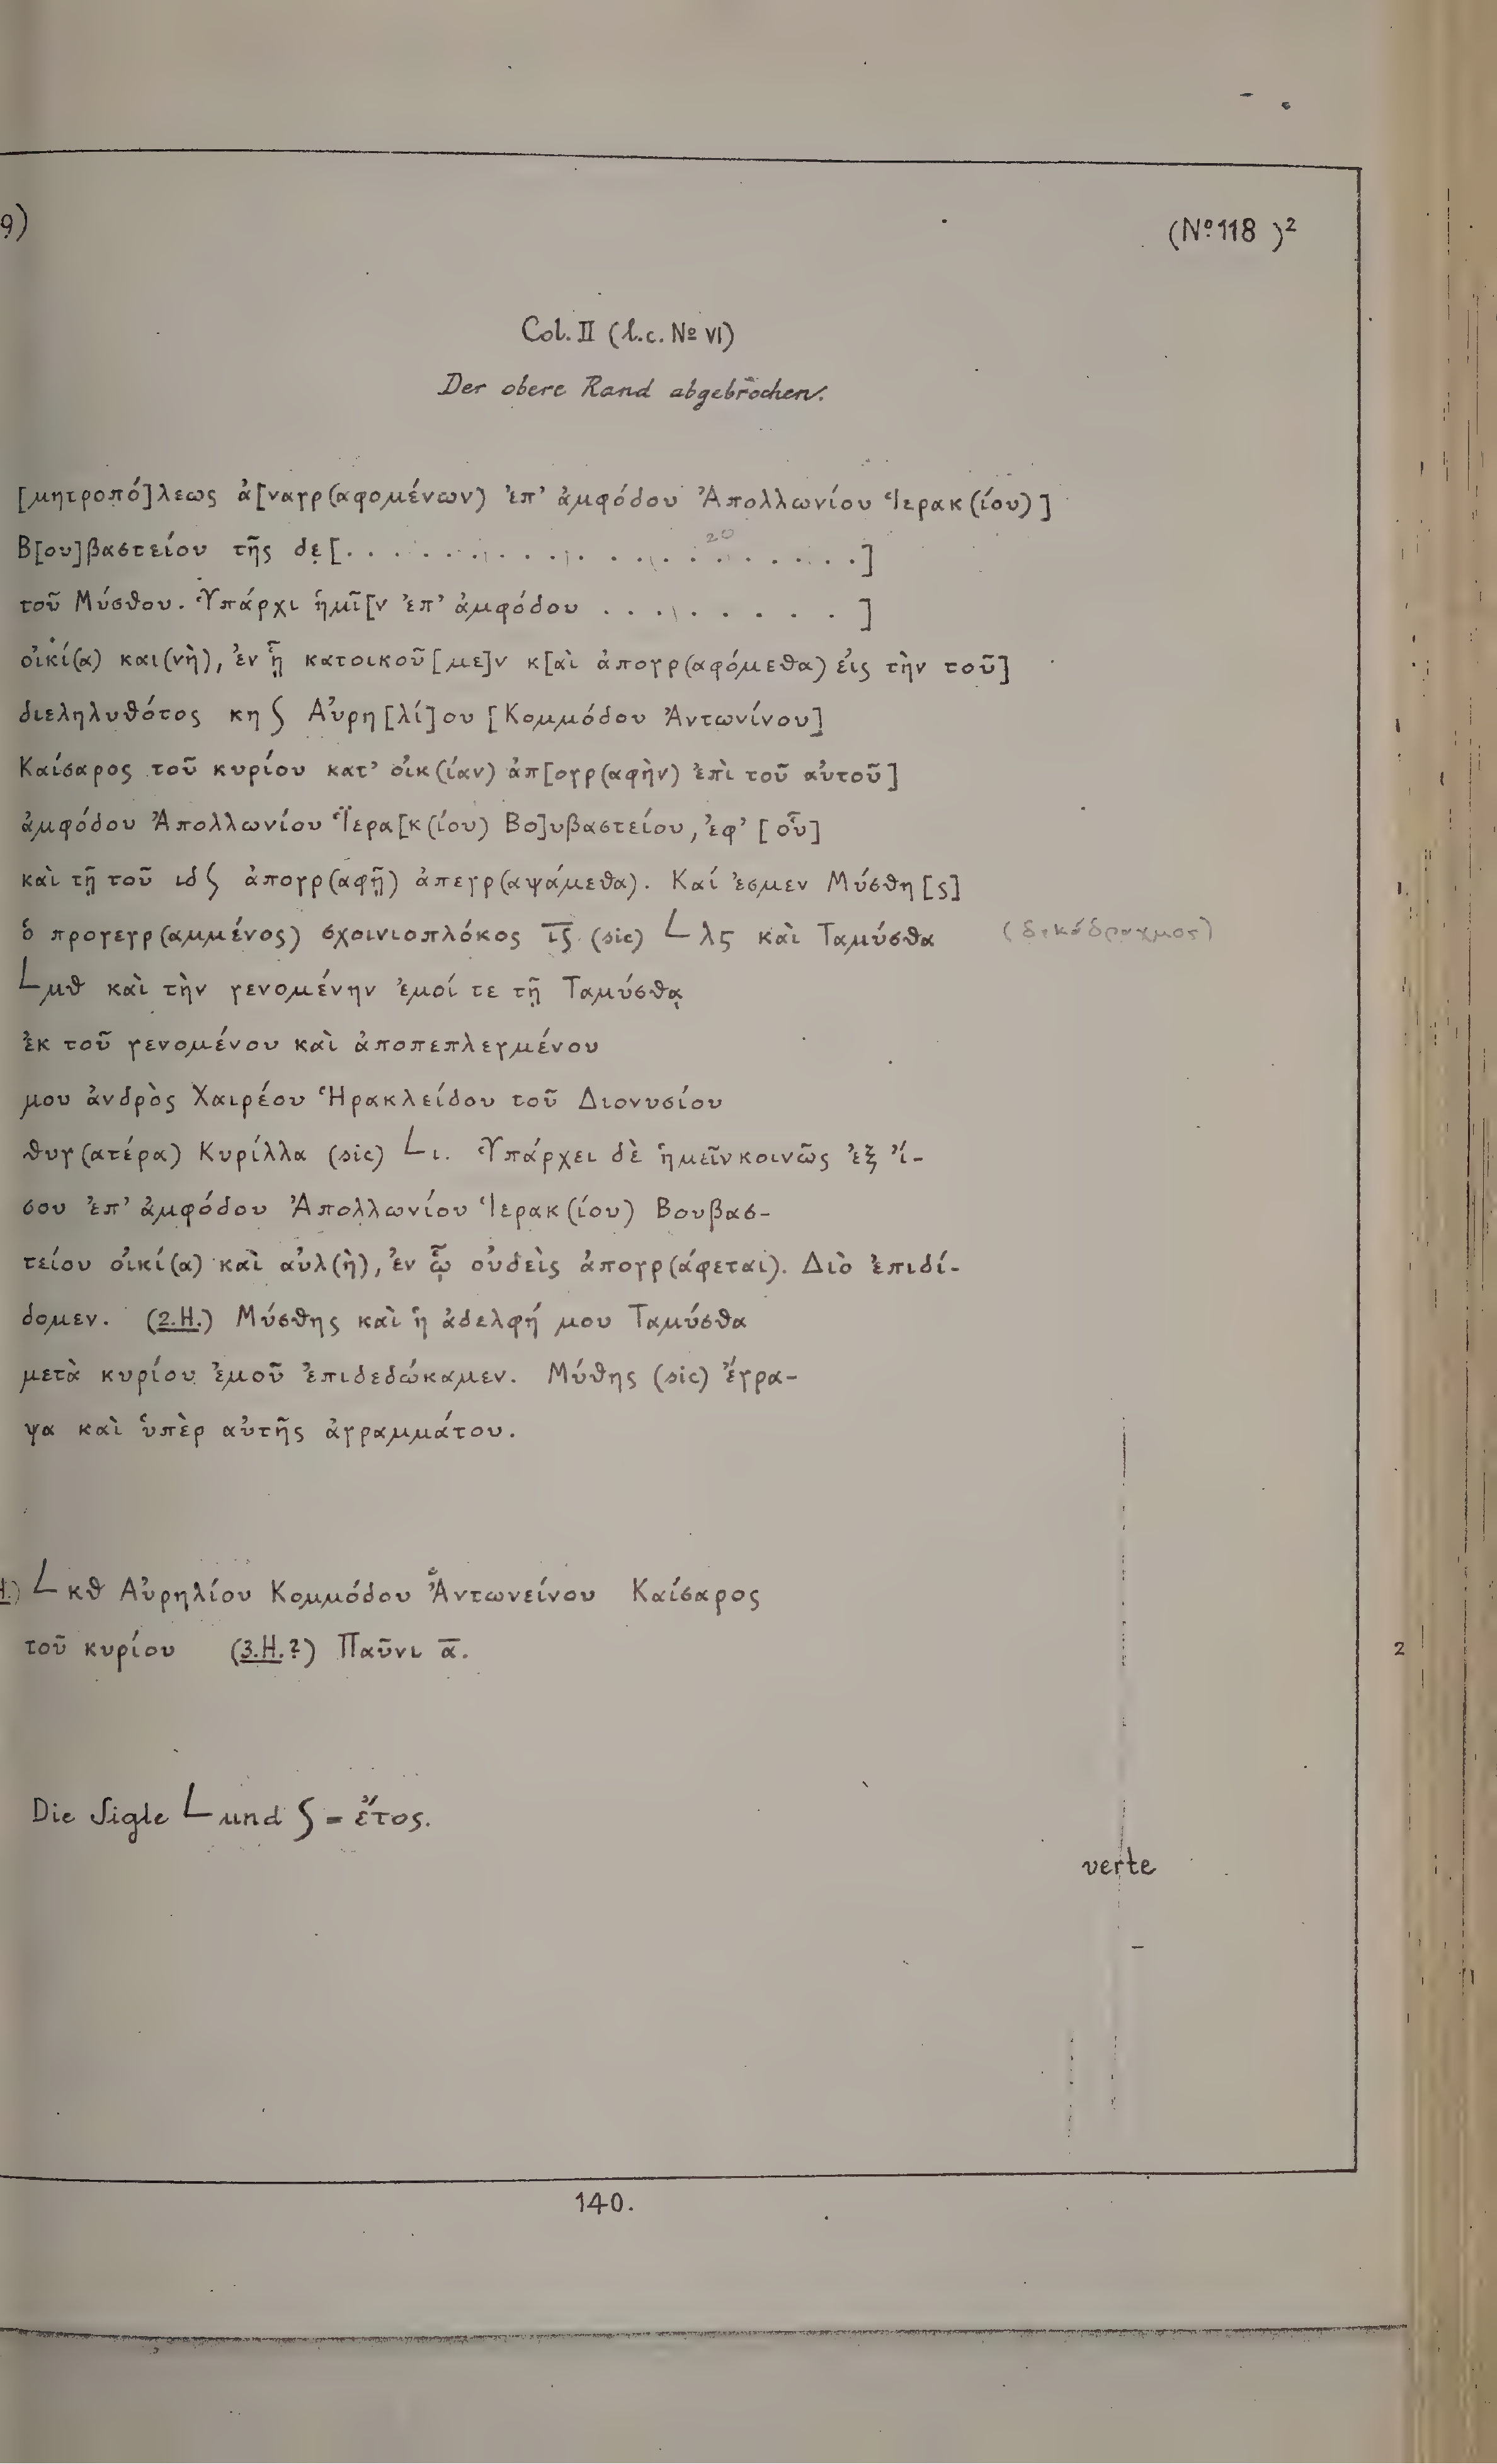 9)
(Nº 118 )²
Col. II (l.c. Nº VI)
Der obere Rand abgebrochen.
[μητροπό]λεως ἀ[ναγρ(αφομένων) ἐπ’ ἀμφόδου Ἀπολλωνίου Ἱερακ(ίου)]
Β[ου]βαστείου τῆς δε̣[. . . . . . . . . . 20 . . . . . . . . .]
τοῦ Μύσθου. Ὑπάρχι ἡμῖ[ν ἐπ’ ἀμφόδου . . . . . . . . .]
οἰκί(α) και(νὴ), ἐν ᾗ κατοικοῦ[με]ν κ[αὶ ἀπογρ(αφόμεθα) εἰς τὴν τοῦ]
διεληλυθότος κη ϛ Αὐρη[λί]ου [Κομμόδου Ἀντωνίνου]
Καίσαρος τοῦ κυρίου κατ’ οἰκ(ίαν) ἀπ[ογρ(αφὴν) ἐπὶ τοῦ αὐτοῦ]
ἀμφόδου Ἀπολλωνίου Ἱ̈ερα[κ(ίου) Βο]υβαστείου, ἐφ’ [οὗ]
καὶ τῇ τοῦ ιδ ϛ ἀπογρ(αφῇ) ἀπεγρ(αψάμεθα). Καί ἐσμεν Μύσθη[ς]
ὁ προγεγρ(αμμένος) σχοινιοπλόκος ι̅ϛ̅ (sic) 𐅹 λϛ καὶ Ταμύσθα
𐅹 μθ καὶ τὴν γενομένην ἐμοί τε τῇ Ταμύσθᾳ
ἐκ τοῦ γενομένου καὶ ἀποπεπλεγμένου
μου ἀνδρὸς Χαιρέου Ἡρακλείδου τοῦ Διονυσίου
θυγ(ατέρα) Κυρίλλα (sic) 𐅹 ι. Ὑπάρχει δὲ ἡμεῖν κοινῶς ἐξ ἴ-
σου ἐπ’ ἀμφόδου Ἀπολλωνίου Ἱερακ(ίου) Βουβασ-
τείου οἰκί(α) καὶ αὐλ(ὴ), ἐν ᾧ οὐδεὶς ἀπογρ(άφεται). Διὸ ἐπιδί-
δομεν. (2.H.) Μύσθης καὶ ἡ ἀδελφή μου Ταμύσθα
μετὰ κυρίου ἐμοῦ ἐπιδεδώκαμεν. Μύθης (sic) ἔγρα-
ψα καὶ ὑπὲρ αὐτῆς ἀγραμμάτου.
𐅹 κθ Αὐρηλίου Κομμόδου Ἀντωνείνου Καίσαρος
τοῦ κυρίου (3.H.?) Παῦνι α̅.
Die Sigle 𐅹 und ϛ = ἔτος.
verte
140.